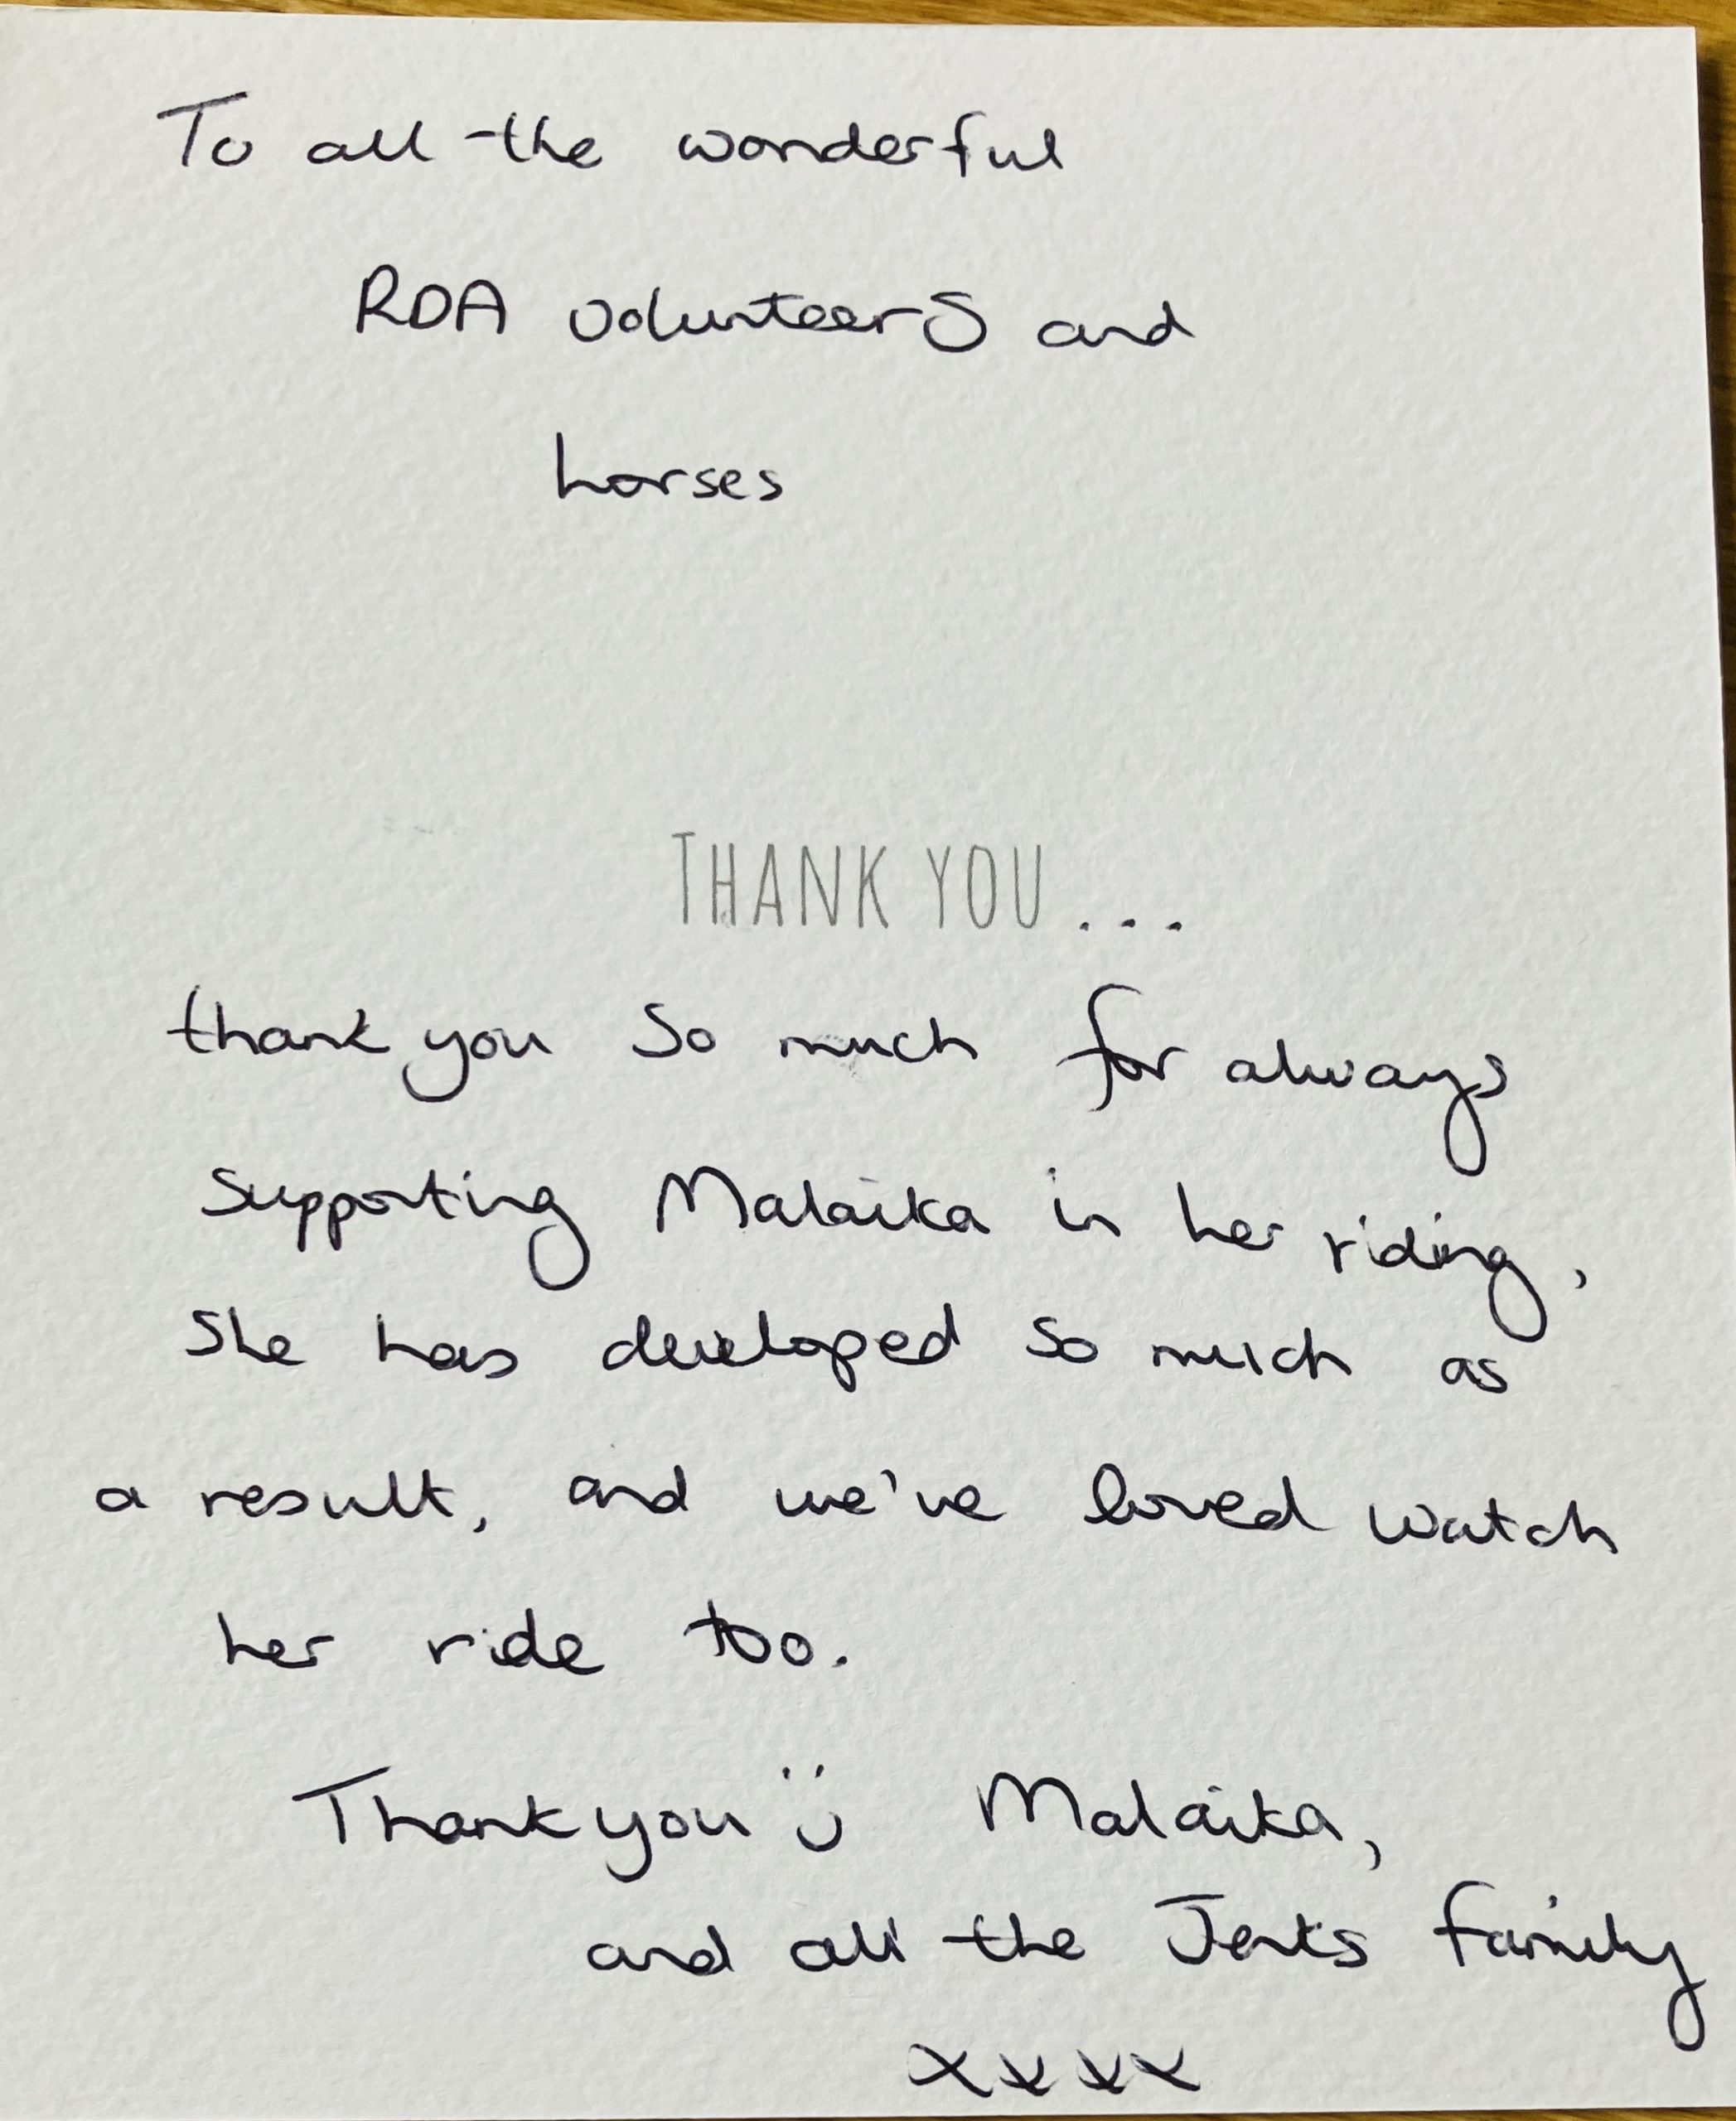 To all the wonderful
RDA volunteers and
horses
THANK YOU...
thank you so much for always
supporting Malaika in her riding,
She has developed so much as
a result, and we've loved watch
her ride too.
Thank you :) Malaika,
and all the Jenks family
xxxx